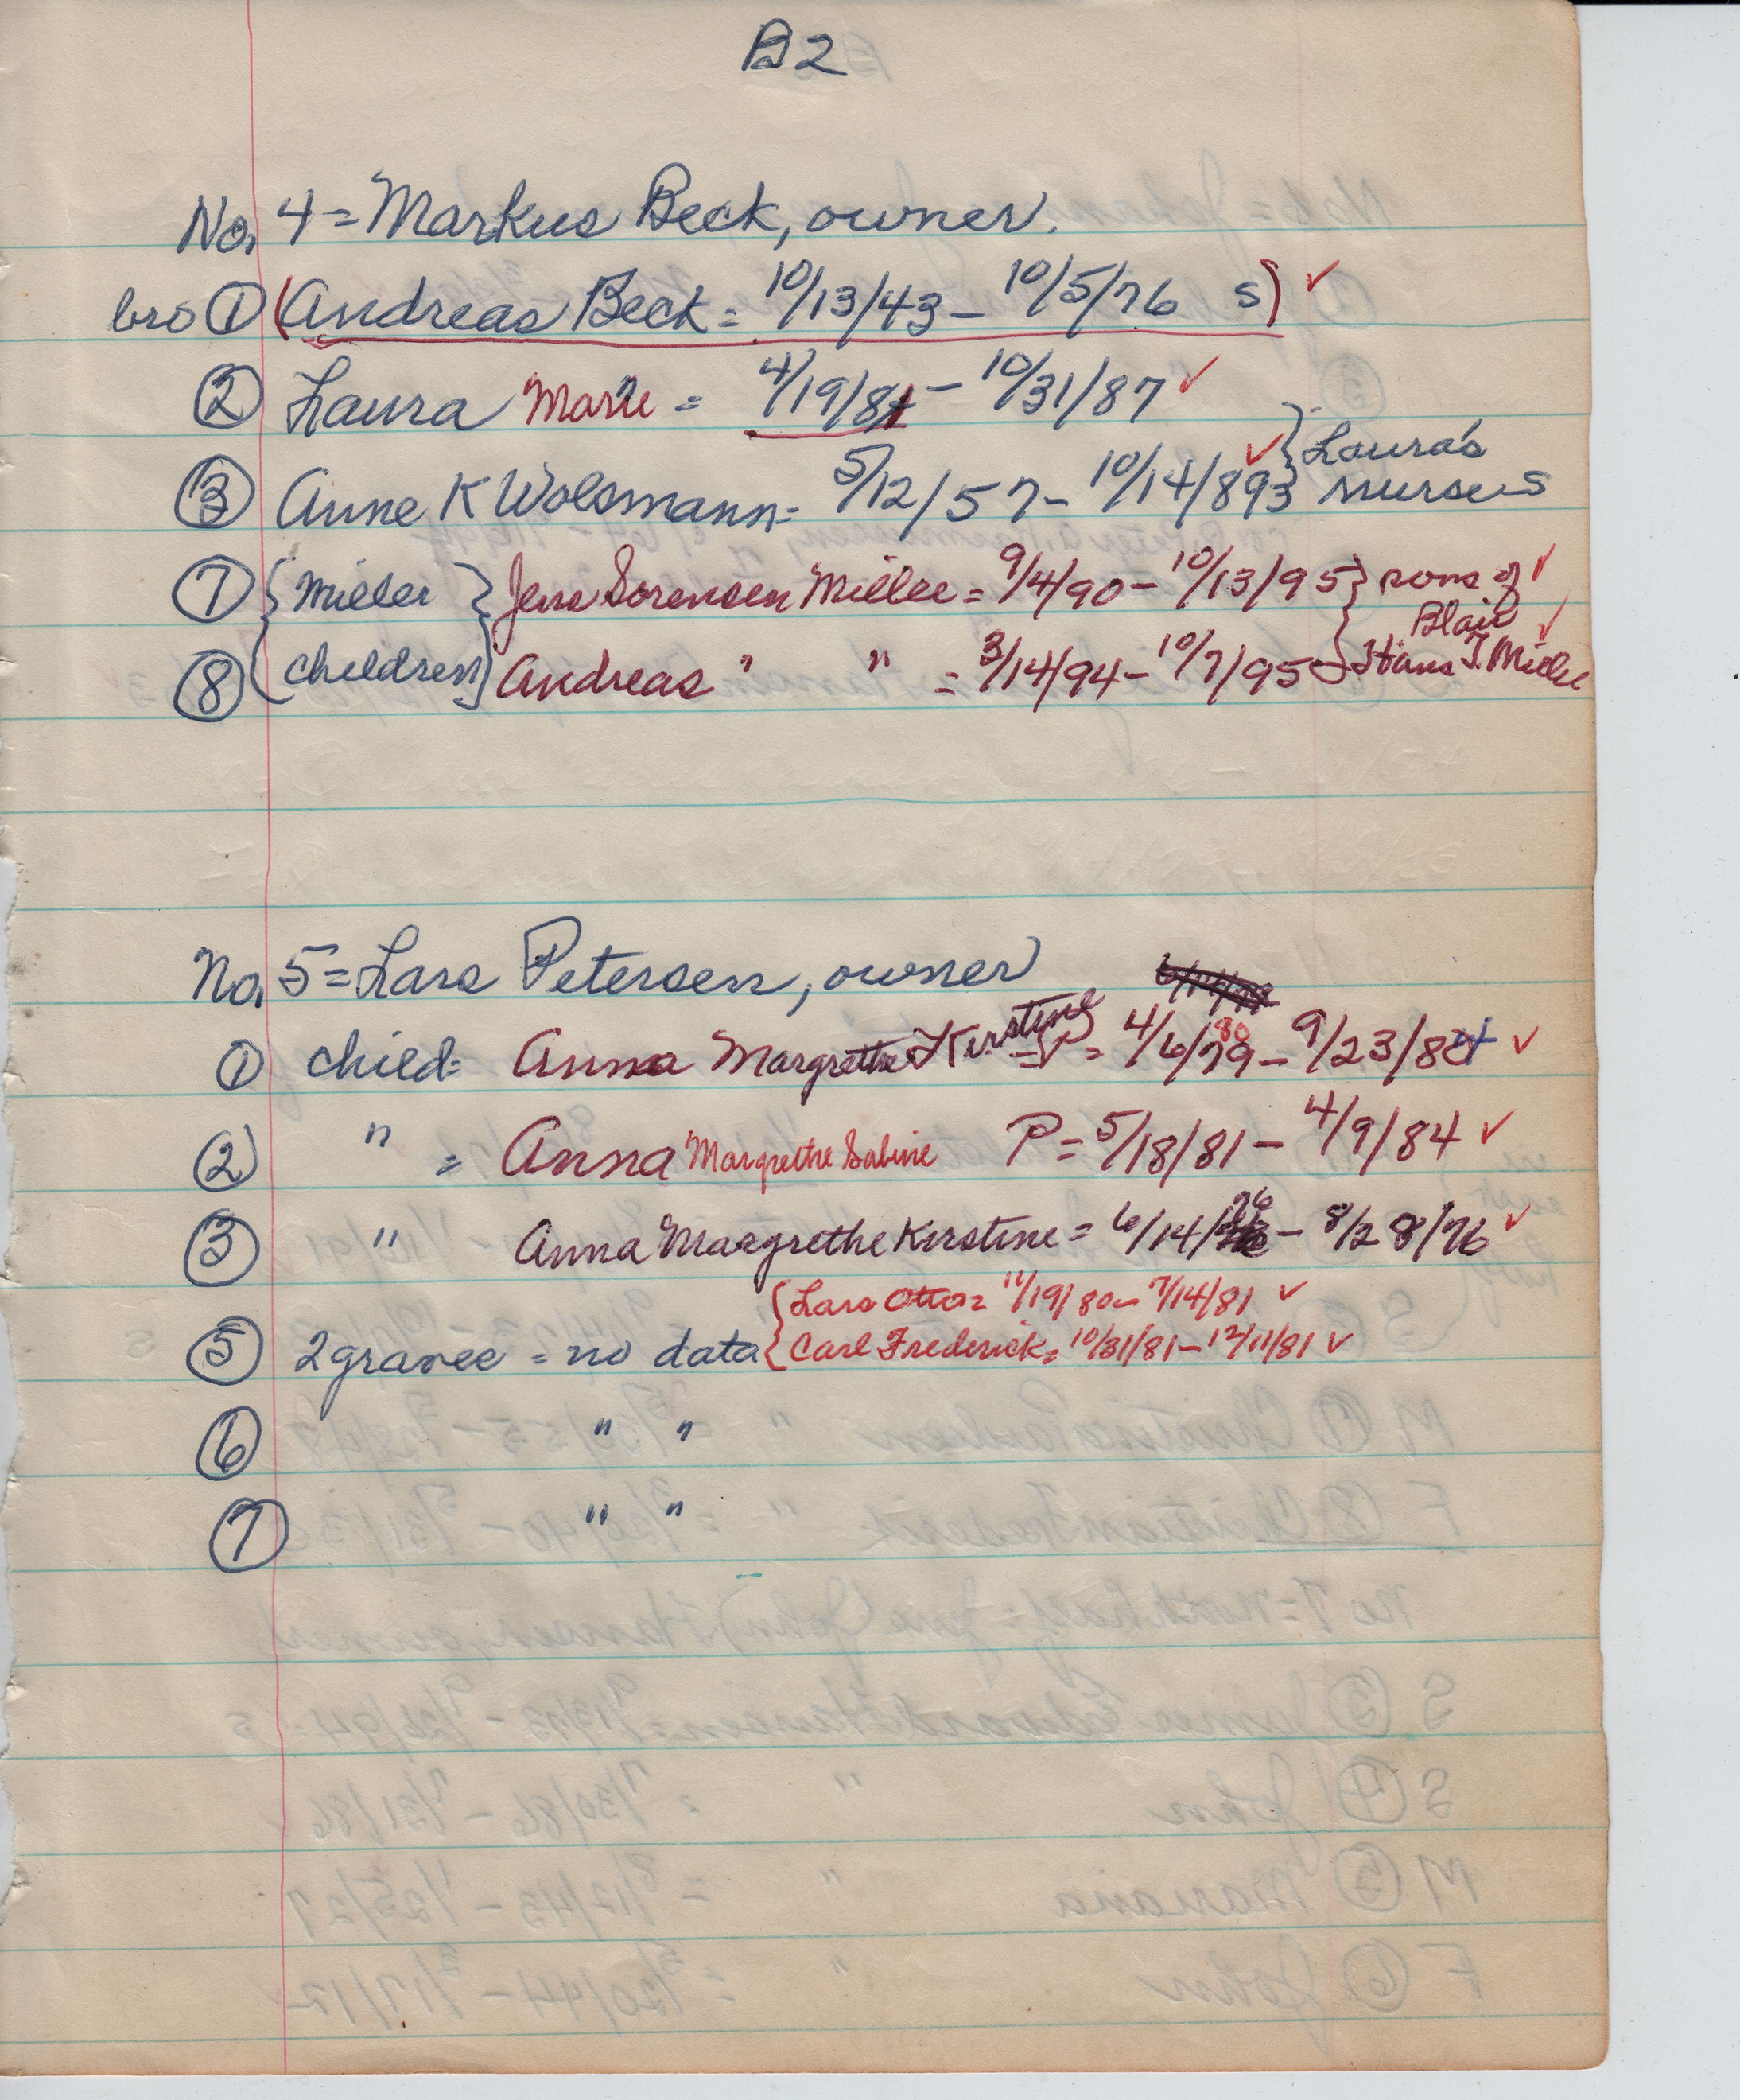 B2
No. 4 = Markus Beck, owner.
bro ① (Andreas Beck = 10/13/43 - 10/5/76 S) ✓
② Laura Marie = 4/19/81 - 10/31/87 ✓
③ Anne K Wolsmann = 5/12/57 - 10/14/893 ✓ } Laura's nurse S
⑦ { Miller } Jens Sorensen Miller = 9/4/90 - 10/13/95 } sons of ✓
Blair ✓
⑧ ( children ) Andreas " " = 3/14/94 - 10/7/95 } Hans J. Miller
No. 5 = Lars Petersen, owner
① child = Anna Margrethe Kirstine P = 4/6/79 80 - 9/23/84 ✓
② " = Anna Margrethe Sabine P = 5/18/81 - 4/9/84 ✓
③ " Anna Margrethe Kirstine = 6/14/76 - 8/28/76 ✓
{ Lars Otto = 11/19/80 - 7/14/81 ✓
⑤ 2 graves = no data { Carl Frederick = 10/31/81 - 12/11/81 ✓
⑥ " "
⑦ " "